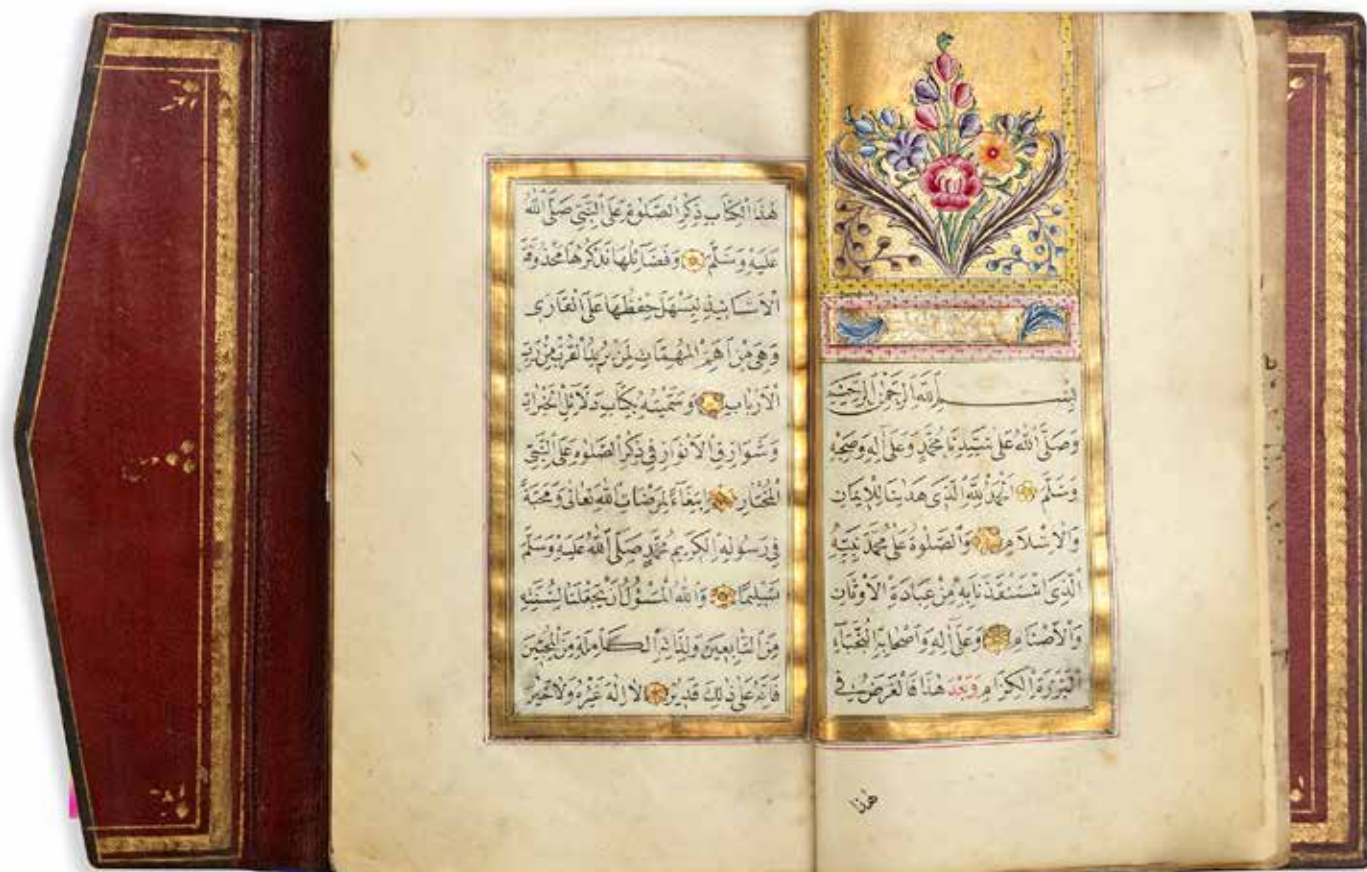 بِسْمِ اللهِ الرَّحْمٰنِ الرَّحِيمِ
وَصَلَّى اللهُ عَلٰى سَيِّدِنَا مُحَمَّدٍ وَعَلٰى اٰلِهِ وَصَحْبِهِ
وَسَلَّمَ اَلْحَمْدُ لِلّٰهِ الَّذِى هَدٰينَا لِلْاِيمَانِ
وَالْاِسْلَامِ وَالصَّلٰوةُ عَلٰى مُحَمَّدٍ نَبِيِّهِ
الَّذِى اسْتَنْقَذَنَا بِهِ مِنْ عِبَادَةِ الْاَوْثَانِ
وَالْاَصْنَامِ وَعَلٰى اٰلِهِ وَاَصْحَابِهِ النُّجَبَاءِ
الْبَرَرَةِ الْكِرَامِ وَبَعْدَ هٰذَا فَالْغَرَضُ فِى
هٰذا
هٰذَا الْكِتَابِ ذِكْرُ الصَّلٰوةِ عَلَى النَّبِىِّ صَلَّى اللهُ
عَلَيْهِ وَسَلَّمَ وَفَضَائِلُهَا نَذْكُرُهَا مَحْذُوفَةَ
الْاَسَانِيدِ لِيَسْهُلَ حِفْظُهَا عَلَى الْقَارِى
وَهِىَ مِنْ اَهَمِّ الْمُهِمَّاتِ لِمَنْ يُرِيدُ الْقُرْبَ مِنْ رَبِّ
الْاَرْبَابِ وَسَمَّيْتُهُ بِكِتَابِ دَلَائِلِ الْخَيْرَاتِ
وَشَوَارِقِ الْاَنْوَارِ فِى ذِكْرِ الصَّلٰوةِ عَلَى النَّبِىِّ
الْمُخْتَارِ اِبْتِغَاءً لِمَرْضَاتِ اللهِ تَعَالٰى وَمَحَبَّةً
فِى رَسُولِهِ الْكَرِيمِ مُحَمَّدٍ صَلَّى اللهُ عَلَيْهِ وَسَلَّمَ
تَسْلِيمًا وَاللهُ الْمَسْؤُلُ اَنْ يَجْعَلَنَا لِسُنَّتِهِ
مِنَ التَّابِعِينَ وَلِذَاتِهِ الْكَامِلَةِ مِنَ الْمُحِبِّينَ
فَاِنَّهُ عَلٰى ذٰلِكَ قَدِيرٌ لَا اِلٰهَ غَيْرُهُ وَلَا خَيْرَ